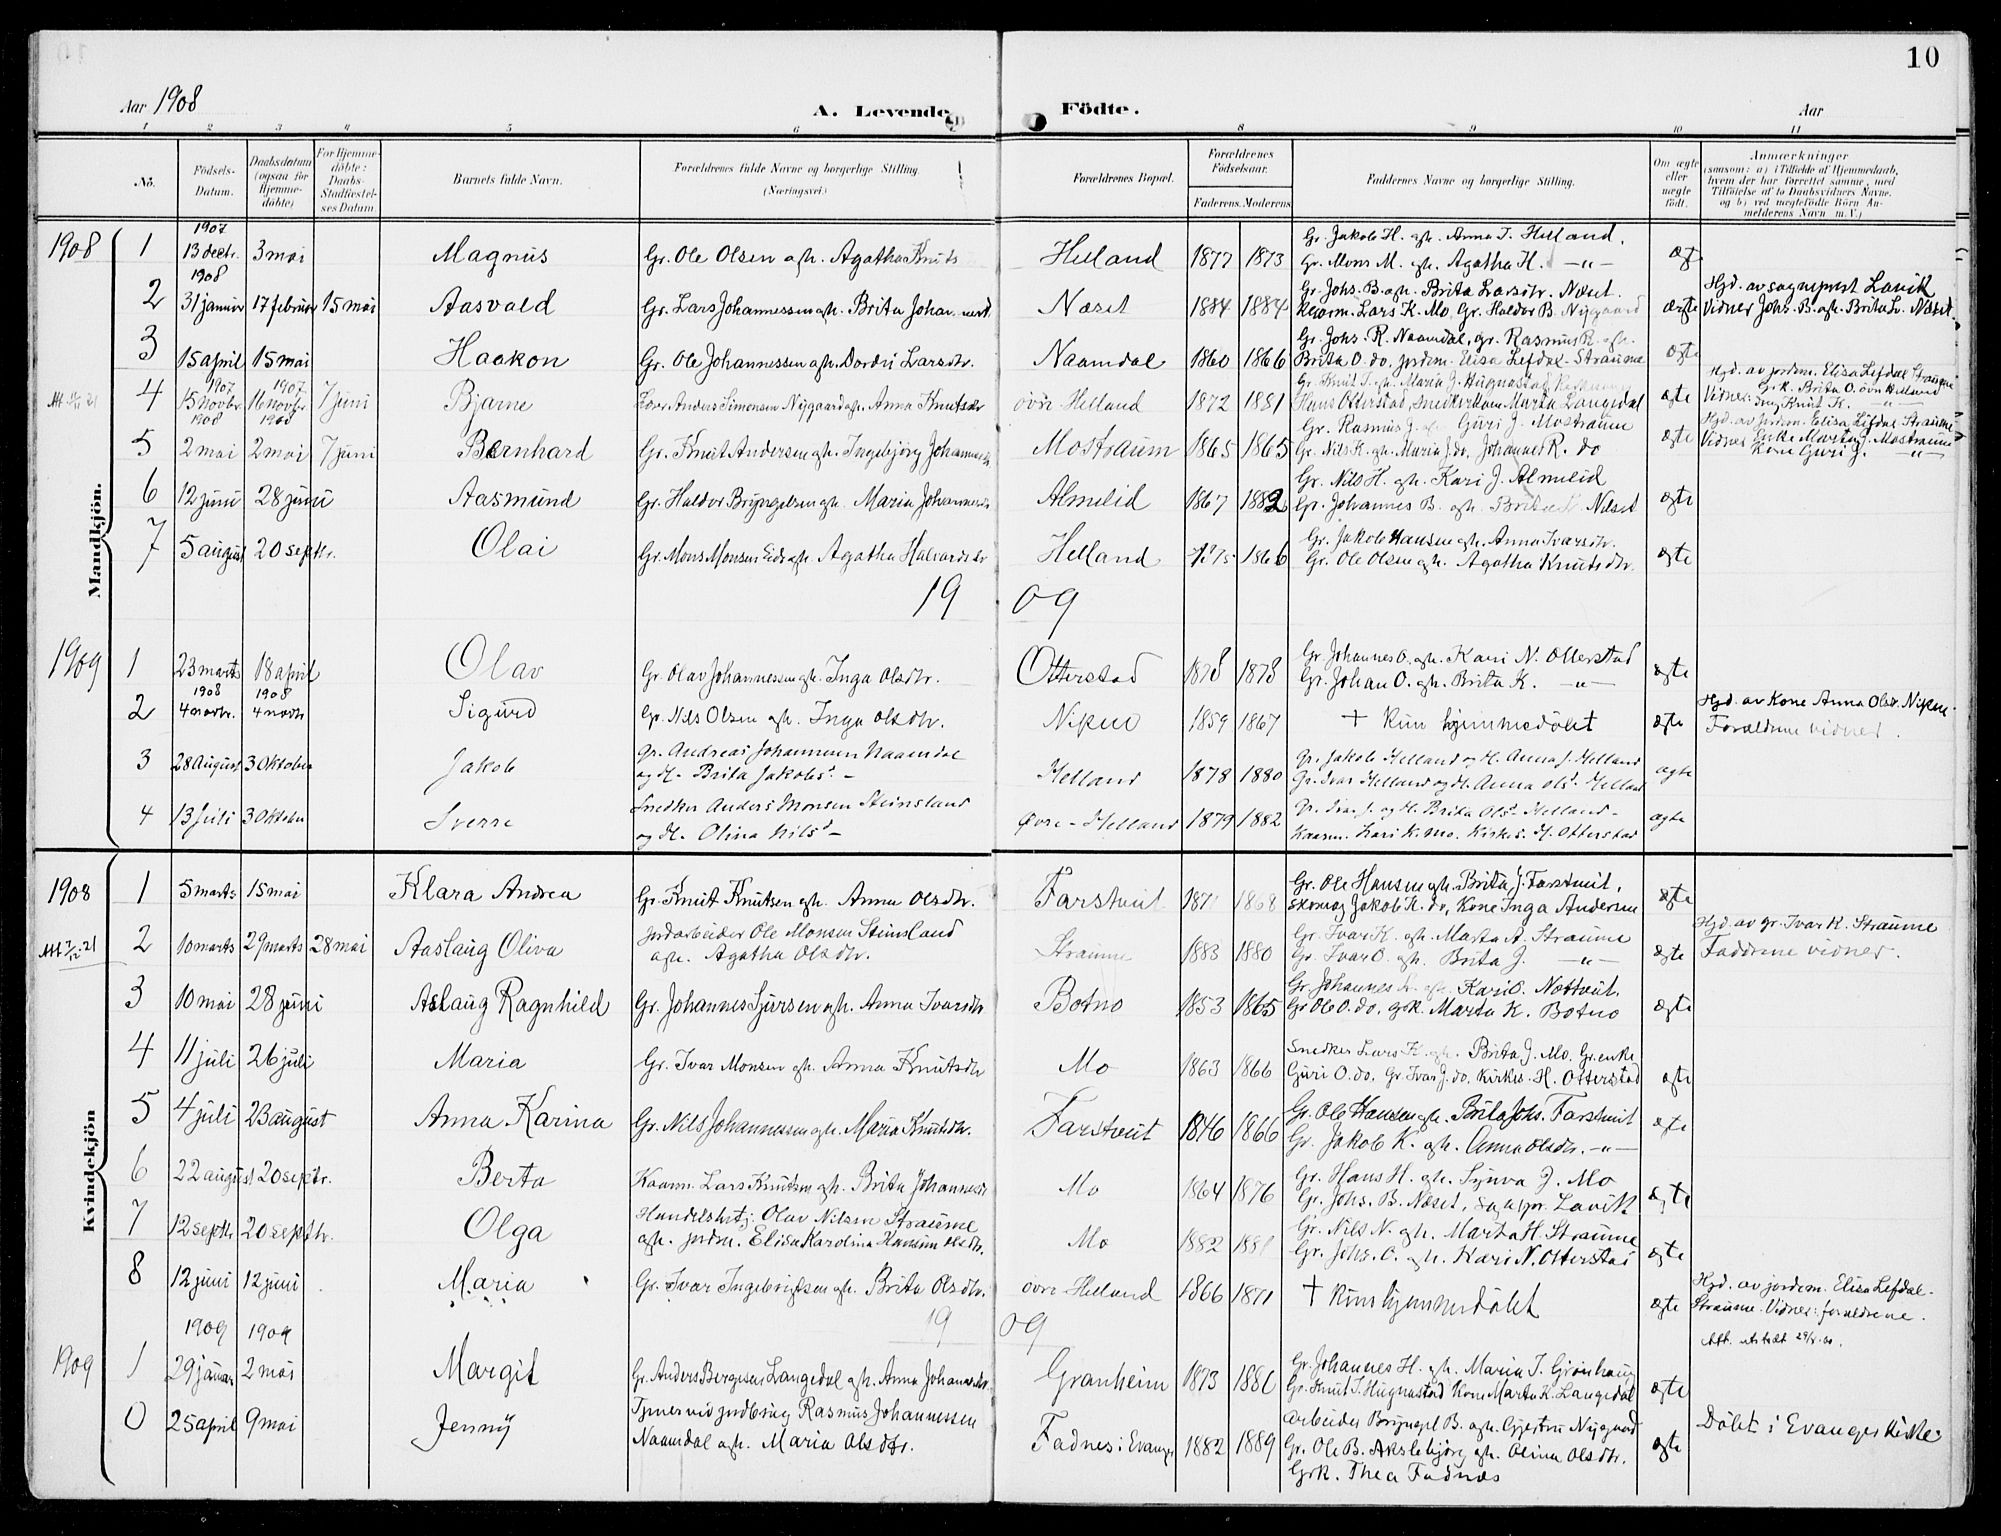 10
Aar 1908
A. Levende Födte.
Aar
1 2 3 4 5 6 8 9 10 11
No.
Födsels-Datum.
Daabsdatum (ogsaa for Hjemme-döbte)
For Hjemme-döbte: Daabs-Stadfæstel-ses Datum.
Barnets fulde Navn.
Forældrenes fulde Navne og borgerlige Stilling (Næringsvei.)
Forældrenes Bopæl.
Forældrenes Födselsaar.
Faderens. Moderens.
Faddernes Navne og borgerlige Stilling.
Om ægte eller uægte födt.
Anmærkninger
(saasom: a) i Tilfælde af Hjemmedaab, hvem der har forrettet samme, med Tilföielse af to Daabsvidners Navne, og b) ved uægtefödte Börn An-melderens Navn m. V.)
Mandkjön.
1908 1 1907 13 decbr. 3 mai Magnus Gr. Ole Olsen og h. Agatha Knuts Helland 1877 1873 Gr. Jakob H. og h. Anna I. Helland.
Gr. Mons M. og h. Agatha H. -"-
2 1908 31 januar 17 februar 15 mai Aasvald Gr. Lars Johannessen og h. Brita Johannesd. Næset 1884 1884 Gr. Johs. B. og h. Brita Larsdtr. Næset.
Lars K. Mo, Gr. Haldor B. Nygaard ægte Hjd. av sogneprest Lavik
Vidner Johs. B. og h. Brita L. Næset.
3 15 april 15 mai Haakon Gr. Ole Johannessen og h. Dordei Larsdtr. Naamdal 1860 1866 Gr. Johs. R. Naamdal, gr. Rasmus R. og h.
Brita O. do. jordm. Elisa Lefdal-Straume ægte
4 1907 15 novbr. 1907 16 novbr. 7 juni Bjarne Anders Simonsen Nygaard og h. Anna Knutsdtr övre Helland 1872 1881 Gr. Knut I. og h. Maria J. Hugnastad,
Hans Otterstad, Snedker Marta Langedal ægte Hjd. av jordm. Elisa Lefdal Straume
Vidner: Grk. Brita O. övre Helland
Knut K. -"-
5 1908 2 mai 1908 2 mai 7 juni Bernhard Gr. Knut Andersen og h. Ingebjörg Johannesdtr Mostraum 1865 1865 Gr. Rasmus J. og h. Guri J. Mostraum
Gr. Nils K. og h. Maria J. do, Johannes R. do ægte Hjd. av jordm. Elisa Lefdal Straume
Vidner Enke Marta J. Mostraum
Kone Guri J. -"-
6 12 juni 28 juni Aasmund Gr. Haldor Bryngelsen og h. Maria Johannesdtr Almelid 1867 1882 Gr. Nils H. og h. Kari J. Almelid
Gr. Johannes B. og h. Brita Næset ægte
7 5 august 20 septbr. Olai Gr. Mons Monsen Eide og h. Agatha Halvardsdtr Helland 1875 1866 Gr. Jakob Hansen og h. Anna Ivarsdtr.
Gr. Ole Olsen og h. Agatha Knutsdtr. ægte
19 09
1909 1 23 marts 18 april Olav Gr. Olav Johannessen og h. Inga Olsdtr. Otterstad 1878 1878 Gr. Johannes O. og h. Kari N. Otterstad
Gr. Johan O. og h. Brita K. -"- ægte
2 1908 4 novbr. 1908 4 novbr Sigurd Gr. Nils Olsen og h. Inga Olsdtr. Nipen 1859 1867 † Kun hjemmedöbt ægte Hjd. av Kone Anna Olsv. Nipen.
Forældrene vidner.
3 28 August 3 Oktober Jakob Gr. Andreas Johannesen Naamdal
og H. Brita Jakobsd. Helland 1878 1880 Gr. Jakob Helland og H. Anna J. Helland
Gr. Ivar Helland og H. Anna Olsd. Helland ægte
4 13 Juli 3 Oktober Sverre Snedker Anders Monsen Steinsland
og H. Olina Nilsd. Övre-Helland 1879 1882 Gr. Ivar J. og H. Brita Olsd. Helland
Kaarm. Lars K. Mo. Kirkes. H. Otterstad ægte
Kvindekjön
1908 1 5 marts 15 mai Klara Andrea Gr. Knut Knutsen og h. Anna Olsdtr. Farstveit 1868 Gr. Ole Hansen og h. Brita J. Farstveit.
Skomag. Jakob K. do, Kone Inga Andersen ægte
2 10 marts 29 marts 28 mai Aaslaug Oliva Jordarbeider Ole Monsen Steinsland
og h. Agatha Olsdtr. Straume 1883 1880 Gr. Ivar K. og h. Marta A. Straume
Gr. Ivar O. og h. Brita J. -"- ægte Hjd. av gr. Ivar K. Straume
Faddrene vidner.
3 10 mai 28 juni Aslaug Ragnhild Gr. Johannes Sjursen og h. Anna Ivarsdtr Botno 1853 1865 Gr. Johannes og h. Kari O. Nottveit.
Gr. Ole O. do. grk. Marta K. Botno ægte
4 11 juli 26 juli Maria Gr. Ivar Monsen og h. Anna Knutsdtr Mo 1863 1866 Snedker Lars K. og h. Brita J. Mo. Gr. enke
Guri O. do. Gr. Ivar J. do. Kirkes. H. Otterstad ægte
5 4 juli 23 august Anna Karina Gr. Nils Johannessen og h. Maria Knutsdtr. Farstveit 1846 1866 Gr. Ole Hansen og h. Brita Johs. Farstveit
Gr. Jakob K. og h. Anna Olsdtr. -"- ægte
6 22 august 20 septbr. Berta Kaarm. Lars Knutsen og h. Brita Johannesdtr Mo 1864 1876 Gr. Hans H. og h. Synva J. Mo
Gr. Johs. B. Næset, Sognepr. Lavik ægte
7 12 septbr. 20 septbr. Olga Handelsbetj. Olav Nilsen Straume
og h. jordm. Elisa Karolina Hansine Olsdtr. Mo 1882 Gr. Nils N. og h. Marta H. Straume
Gr. Johs. O. og h. Kari N. Otterstad ægte
8 12 juni 12 juni Maria Gr. Ivar Ingebrigtsen og h. Brita Olsdtr. övre Helland 1866 1871 † Kun hjemmedöbt ægte Hjd. av jordm. Elisa Lefdal-
Straume. Vidner: forældrene.
19 09
1909 1 1909 29 januar 1909 2 mai Margit Gr. Anders Bergesen Langedal og h. Anna Johannesdtr Granheim 1873 Gr. Johannes H. og h. Maria I. Grönhaug
Gr. Knut I. Hugnastad Kone Marta K. Langedal ægte
0 25 april 9 mai Jenny Tjener ved jordbrug Rasmus Johannessen
Naamdal og h. Maria Olsdtr. Fadnes i Evanger 1882 1889 Arbeider Bryngel B. og h. Gjertru Nygaard
Gr. Ole B. og h. Olina Olsdtr.
Grk. Thea Fadnæs ægte Döbt i Evanger kirke.